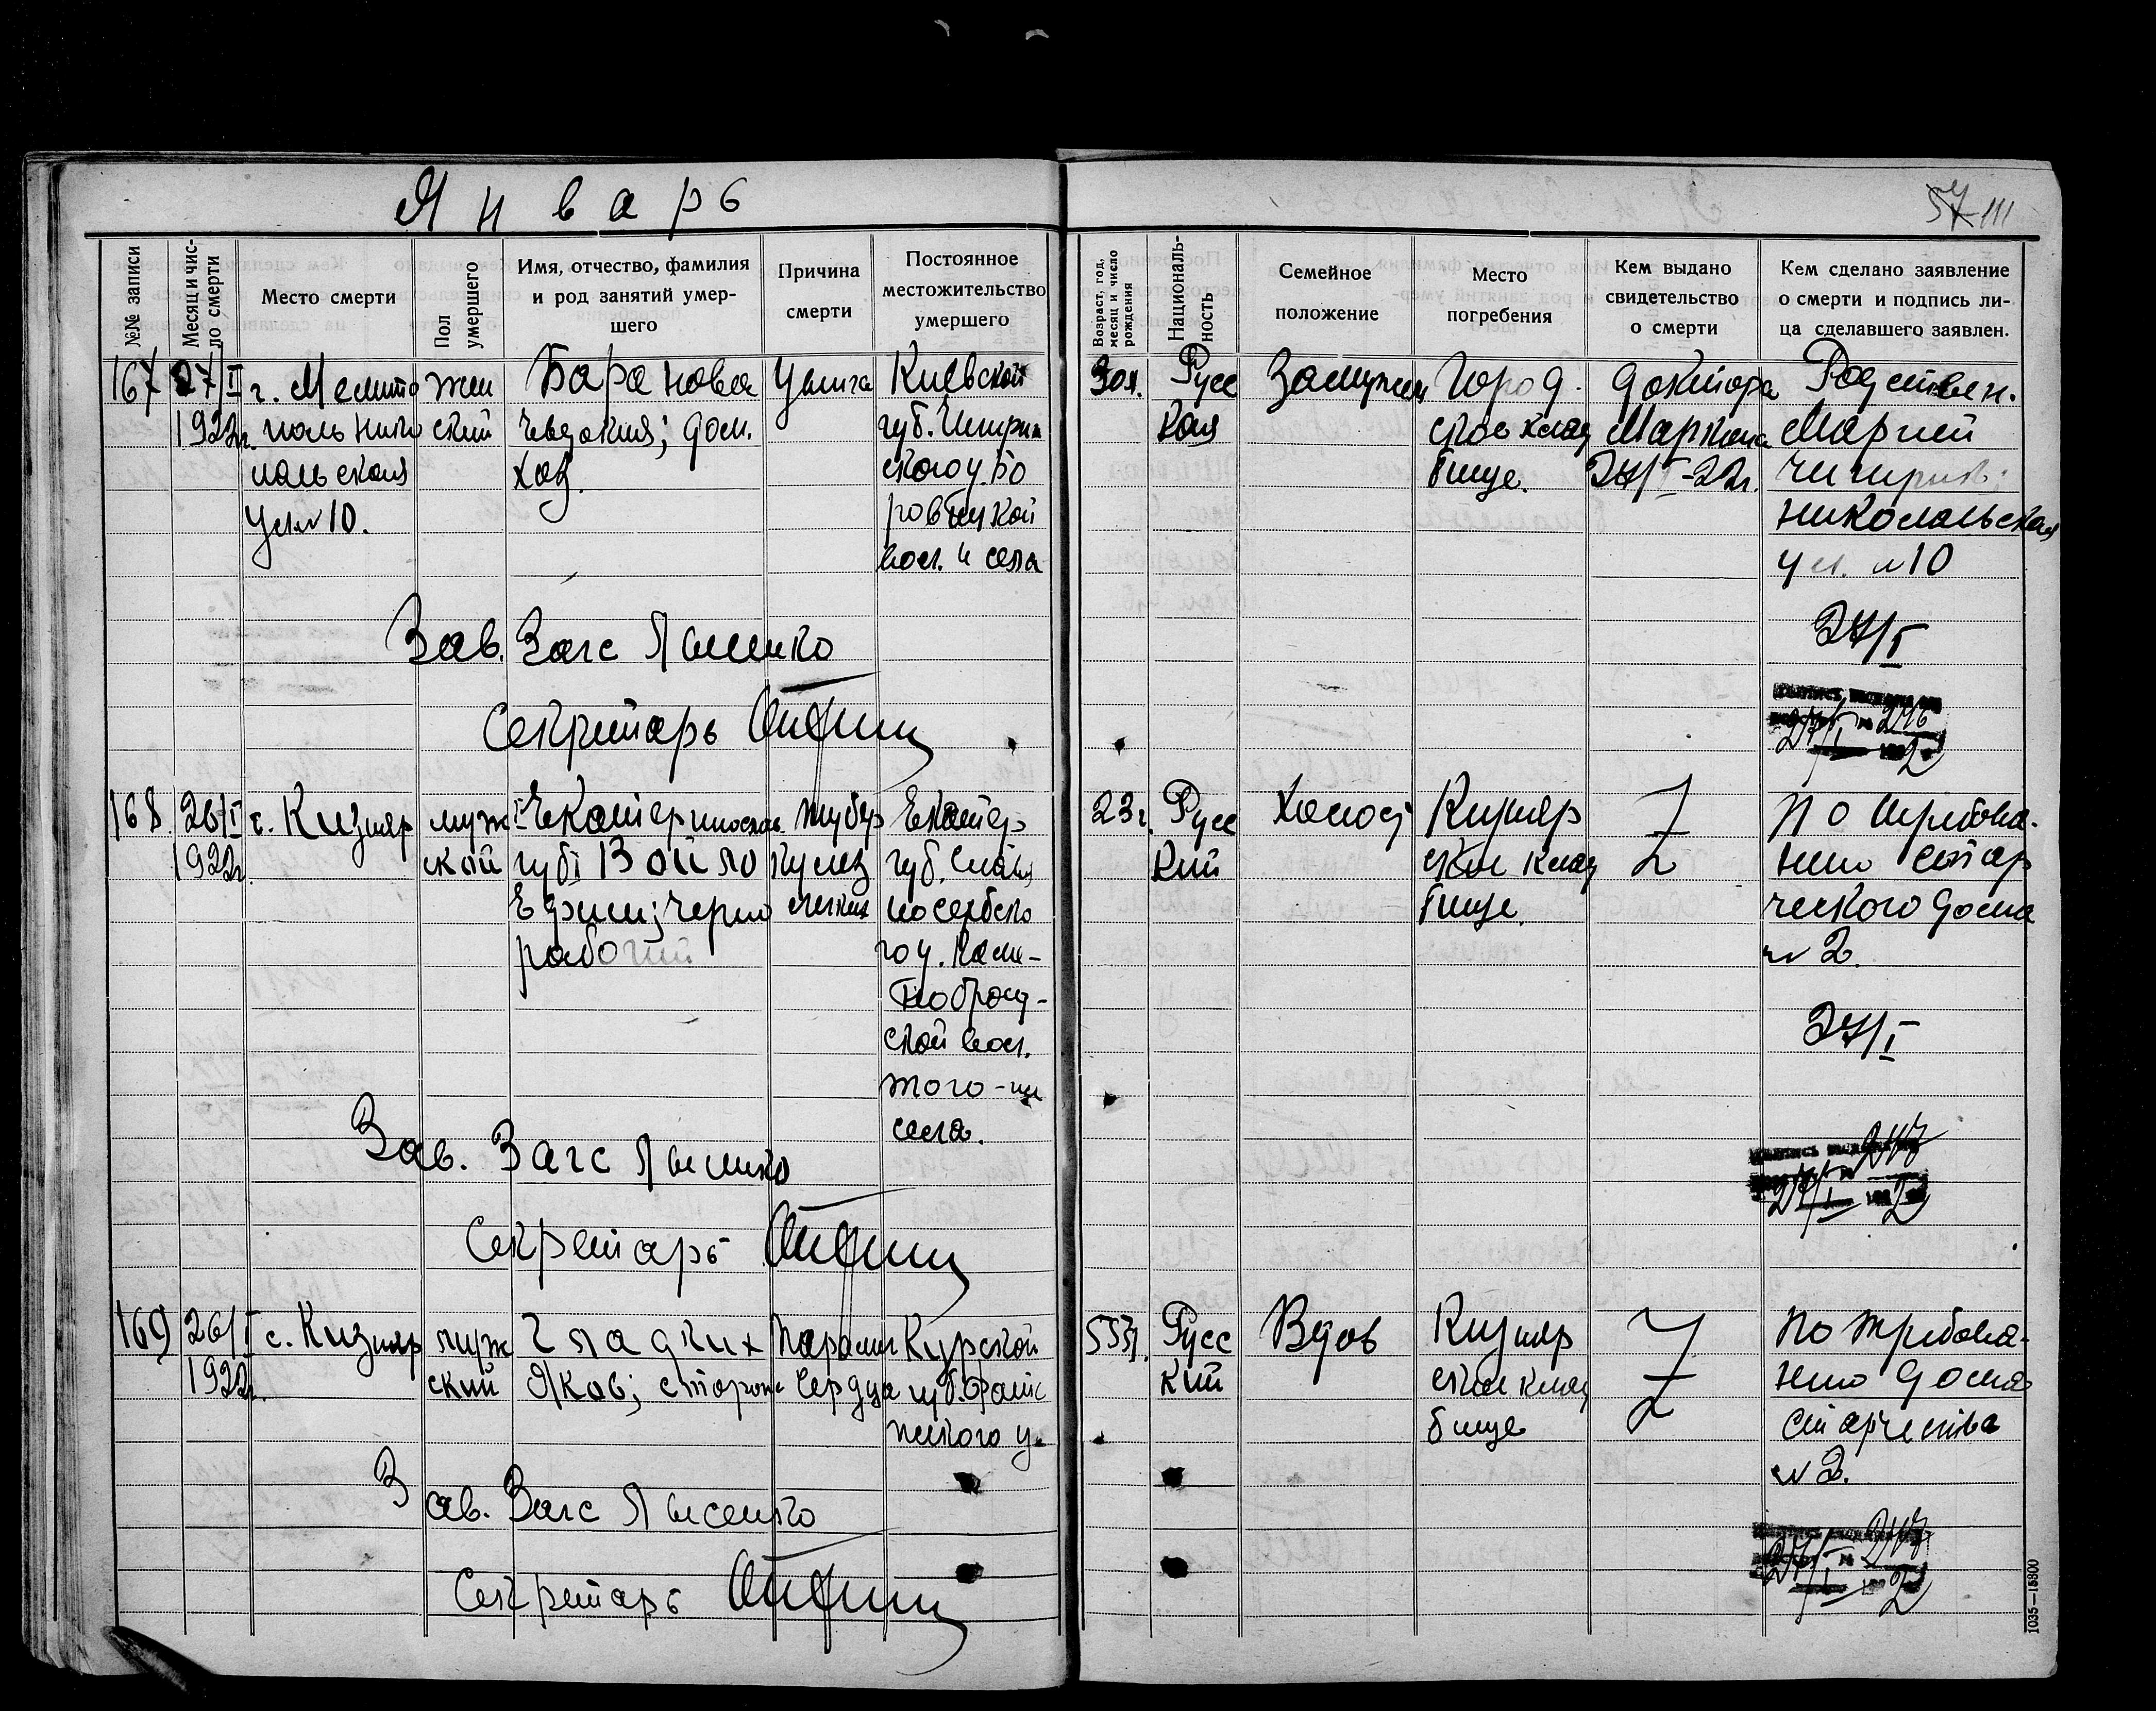 Январь
57 111
№№ записи
Месяц и число смерти
Место смерти
Пол умершего
Имя, отчество, фамилия
и род занятий умер-
шего
Причина
смерти
Постоянное
местожительство
умершего
Возраст, год, месяц и число рождения
Националь-
ность
Семейное
положение
Место
погребения
Кем выдано
свидетельство
о смерти
Кем сделано заявление
о смерти и подпись ли-
ца сделавшего заявлен.
167
27/I
1922г.
г. Мелито
поль Нико
ул. № 10.
жен
ский
Баранова
Евдокия; дом.
хоз.
Киевской
губ.
вол. и села
30л.
Русс
кая
Замужем
Город.
ское клад
бище.
доктора
27/I-22г.
Родствен.
Марией
Никольская
ул. № 10
27/I
Зав. Загс Лысенко
Секретарь
27/I № 246
2
168
26/I
1922г.
с. Кизияр
муж
ский
Екатеринослав.
губ. Войло
Ефим; черно
рабочий
тубер
кулез
легких
Екатер
губ. Славя
носербско
го у.
ской вол.
того-же
села.
23г.
Русс
кий
Холост
Кизияр
ское клад
бище.
По требова-
нию стар
ческого дома
№ 2.
27/I
Зав. Загс Лысенко
Секретарь
247
27/I 2
169
26/I
1922г.
с. Кизияр
муж
ский
Гладких
Яков; сторож
Паралич
сердца
Курской
губ. Фате
жского у.
55л.
Русс
кий
Вдов
Кизияр
ское клад
бище
По требова-
нию дома
старчества
№ 2.
Зав. Загс Лысенко
Секретарь
27/I № 247
2
1035—15800